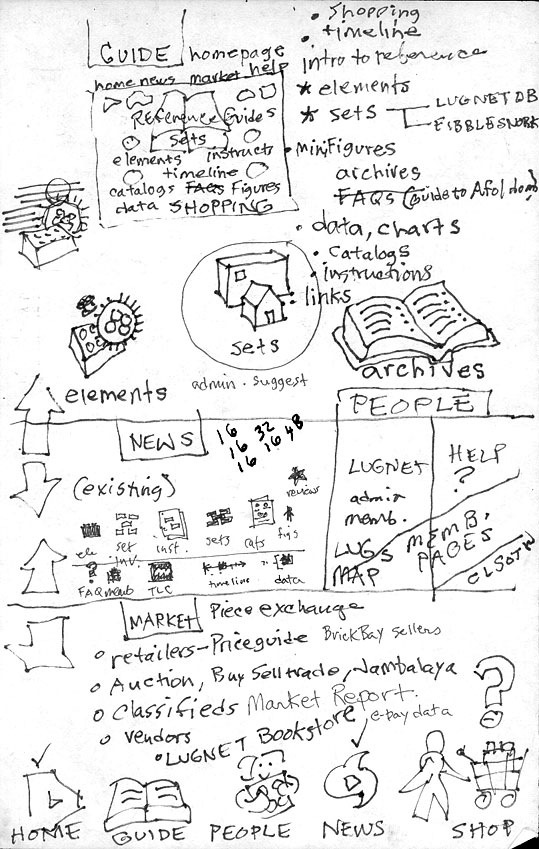 GUIDE homepage
home news market help
Reference Guides
sets
elements instructs
timeline
catalogs FAQs Figures
data SHOPPING
• Shopping
• timeline
intro to reference
* elements
* sets
LUGNET DB
FIBBLESNORK
• minifigures
archives
FAQs (Guide to Afol dom)
• data, charts
• Catalogs
• instructions
• links
sets
admin. suggest
archives
elements
PEOPLE
NEWS
16 32
16 16 48
16
(existing)
reviews
ele. set inv. inst. sets cats figs
FAQ memb TLC timeline data
LUGNET
admin
memb.
HELP
?
LUGS
MAP
MEMB.
PAGES
MARKET Piece exchange
o retailers – Priceguide BrickBay sellers
o Auction, Buy Sell trade, Jambalaya
o Classifieds Market Report.
o Vendors
• LUGNET Bookstore, e-bay data
?
HOME GUIDE PEOPLE NEWS SHOP